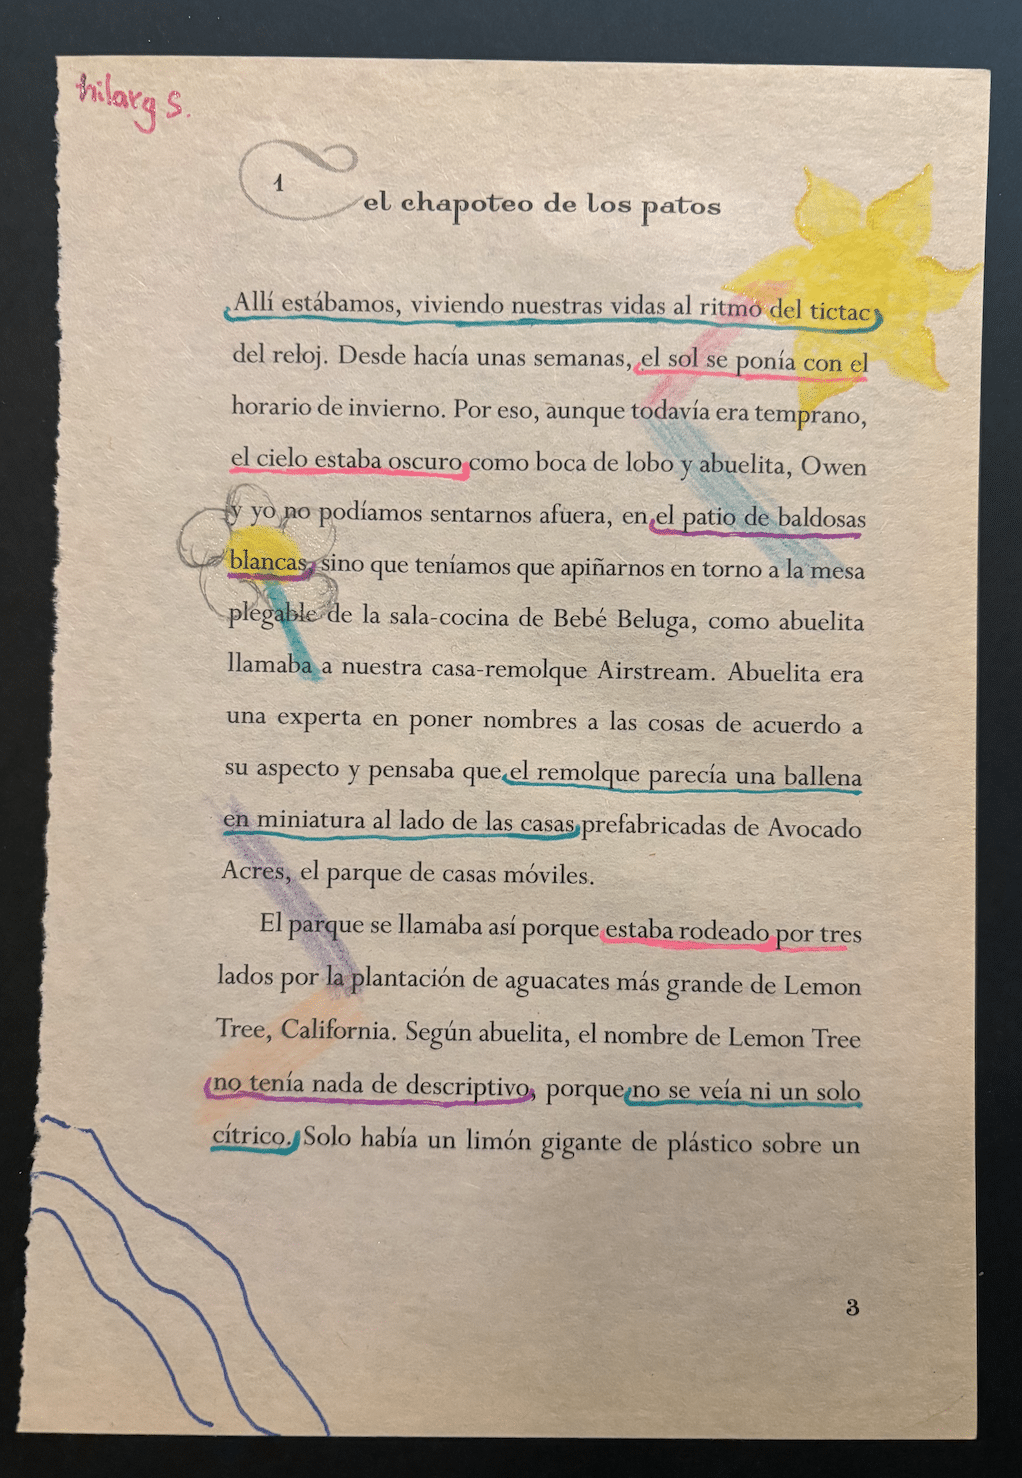 hilary S.
1
el chapoteo de los patos
Allí estábamos, viviendo nuestras vidas al ritmo del tictac
del reloj. Desde hacía unas semanas, el sol se ponía con el
horario de invierno. Por eso, aunque todavía era temprano,
el cielo estaba oscuro como boca de lobo y abuelita, Owen
y yo no podíamos sentarnos afuera, en el patio de baldosas
blancas, sino que teníamos que apiñarnos en torno a la mesa
plegable de la sala-cocina de Bebé Beluga, como abuelita
llamaba a nuestra casa-remolque Airstream. Abuelita era
una experta en poner nombres a las cosas de acuerdo a
su aspecto y pensaba que el remolque parecía una ballena
en miniatura al lado de las casas prefabricadas de Avocado
Acres, el parque de casas móviles.
El parque se llamaba así porque estaba rodeado por tres
lados por la plantación de aguacates más grande de Lemon
Tree, California. Según abuelita, el nombre de Lemon Tree
no tenía nada de descriptivo, porque no se veía ni un solo
cítrico. Solo había un limón gigante de plástico sobre un
3